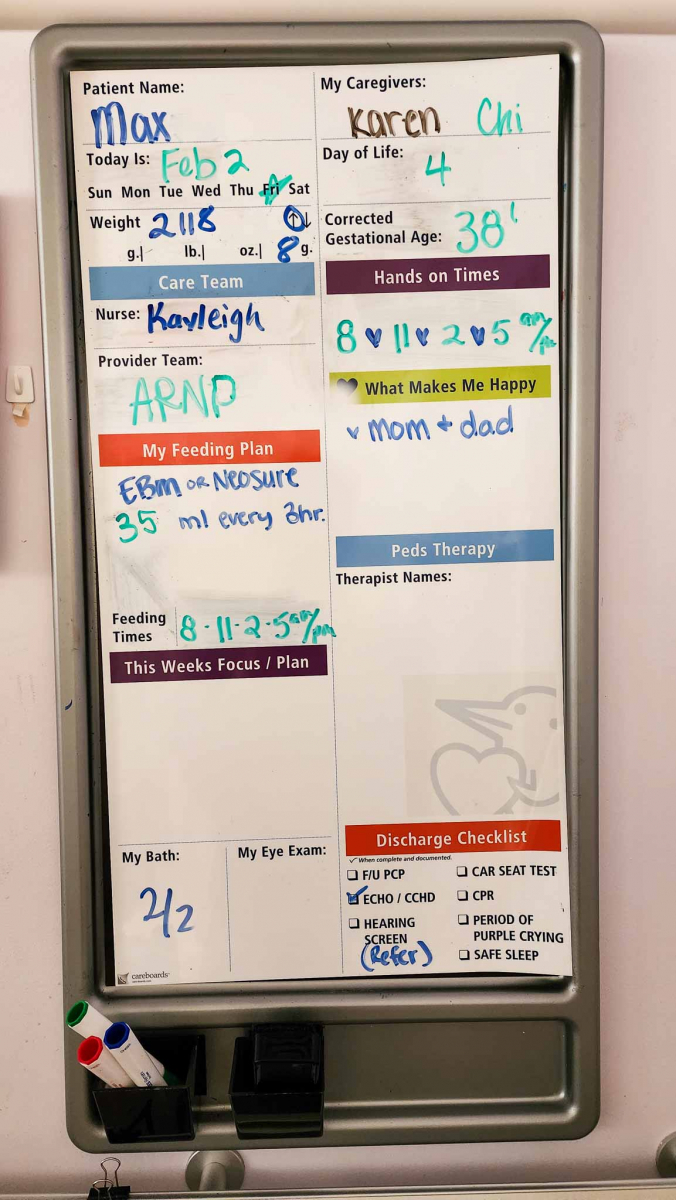 Patient Name:
Max
My Caregivers:
Karen Chi
Today Is: Feb 2
Sun Mon Tue Wed Thu Fri Sat
Day of Life:
4
Weight 2118 ↑↓
g.| lb.| oz.| 8 g.
Corrected
Gestational Age: 38'
Care Team
Nurse: Kayleigh
Provider Team:
ARNP
My Feeding Plan
EBM OR Neosure
35 ml every 3hr.
Feeding
Times 8 · 11 · 2 · 5 am/pm
This Weeks Focus / Plan
My Bath:
2/2
My Eye Exam:
Hands on Times
8 11 2 5 am/pm
What Makes Me Happy
mom + dad
Peds Therapy
Therapist Names:
Discharge Checklist
✓ When complete and documented.
F/U PCP
ECHO / CCHD
HEARING
SCREEN
(Refer)
CAR SEAT TEST
CPR
PERIOD OF
PURPLE CRYING
SAFE SLEEP
careboards